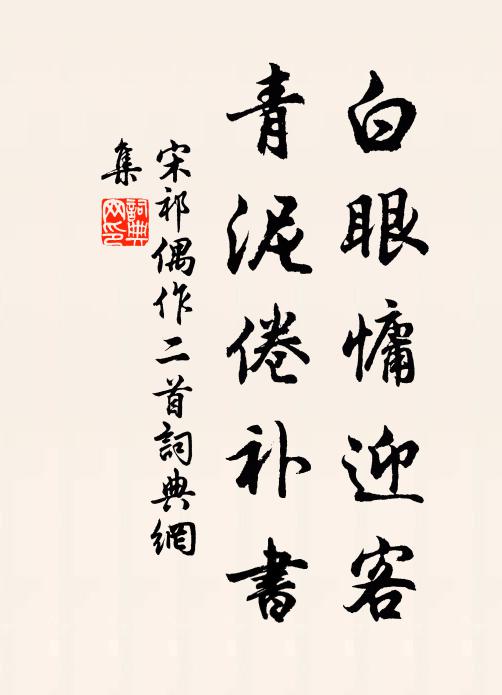 白眼慵迎客
青泥倦补書
宋祁偶作二首詞典網
集
詞典網印